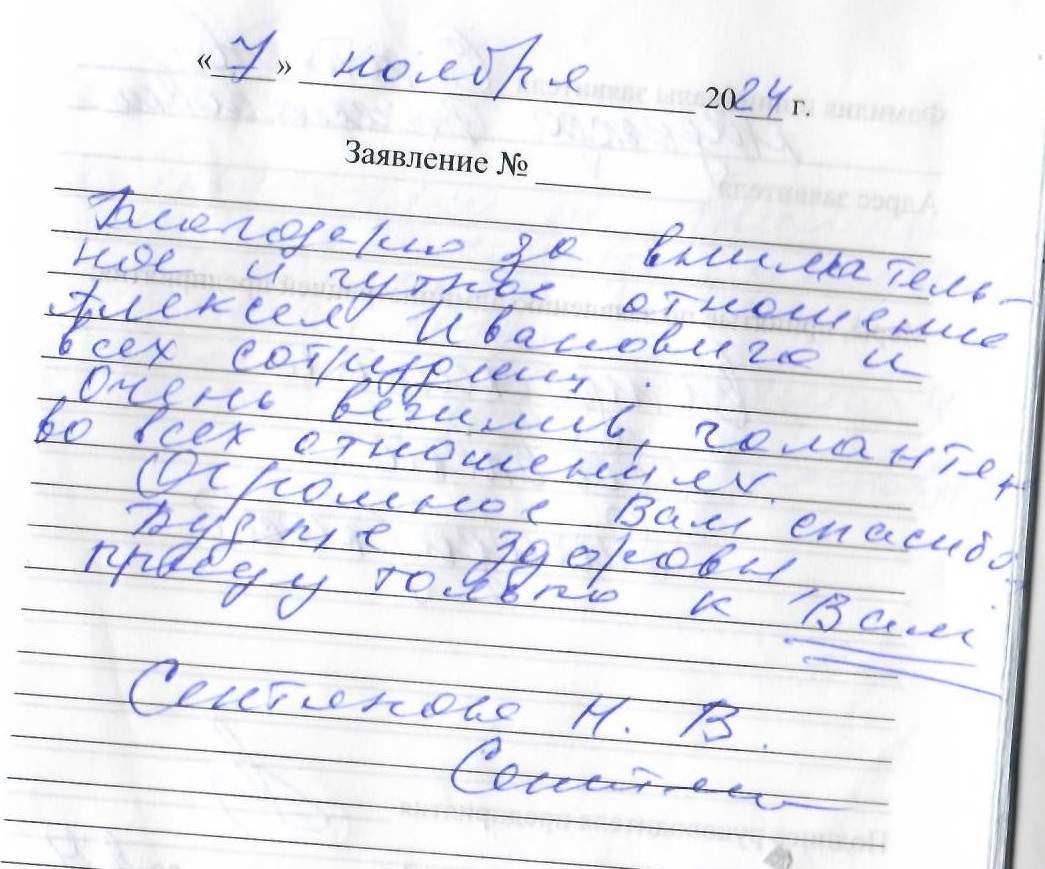 «7» ноября 2024 г.
Заявление №
Благодарю за вниматель-
ное и чуткое отношение
Алексея Ивановича и
всех сотрудниц.
Очень вежлив, галантен
во всех отношениях.
Огромное Вам спасибо.
Будьте здоровы
приеду только к Вам
Сентякова Н. В.